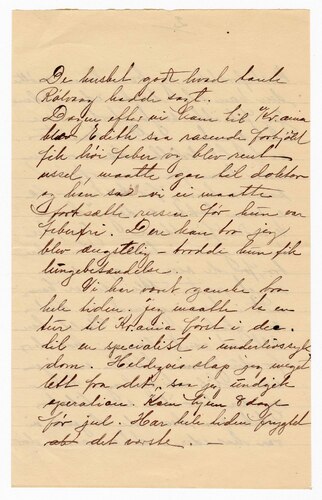 2
De husket godt hvad tante
Rølvaag hadde sagt.
Dagen efter vi kom til Kr.ania
blev Edith saa rasende forkjølt
fik høi feber og blev rent
ussel, maatte gaa til doktor
og han sa vi ei maatte
fortsætte reisen før hun var
feberfri. Dere kan tro jeg
blev ængstelig - trodde hun fik
lungebetændelse.
Vi har været ganske bra
hele tiden. Jeg maatte ta en
tur til Kr.ania først i dec.
til en specialist i underlivssyg
dom. Heldigvis slap jeg meget
lett fra det, saa jeg undgik
operation. Kom hjem 8 dage
før jul. Har hele tiden frygtet
det værste. -